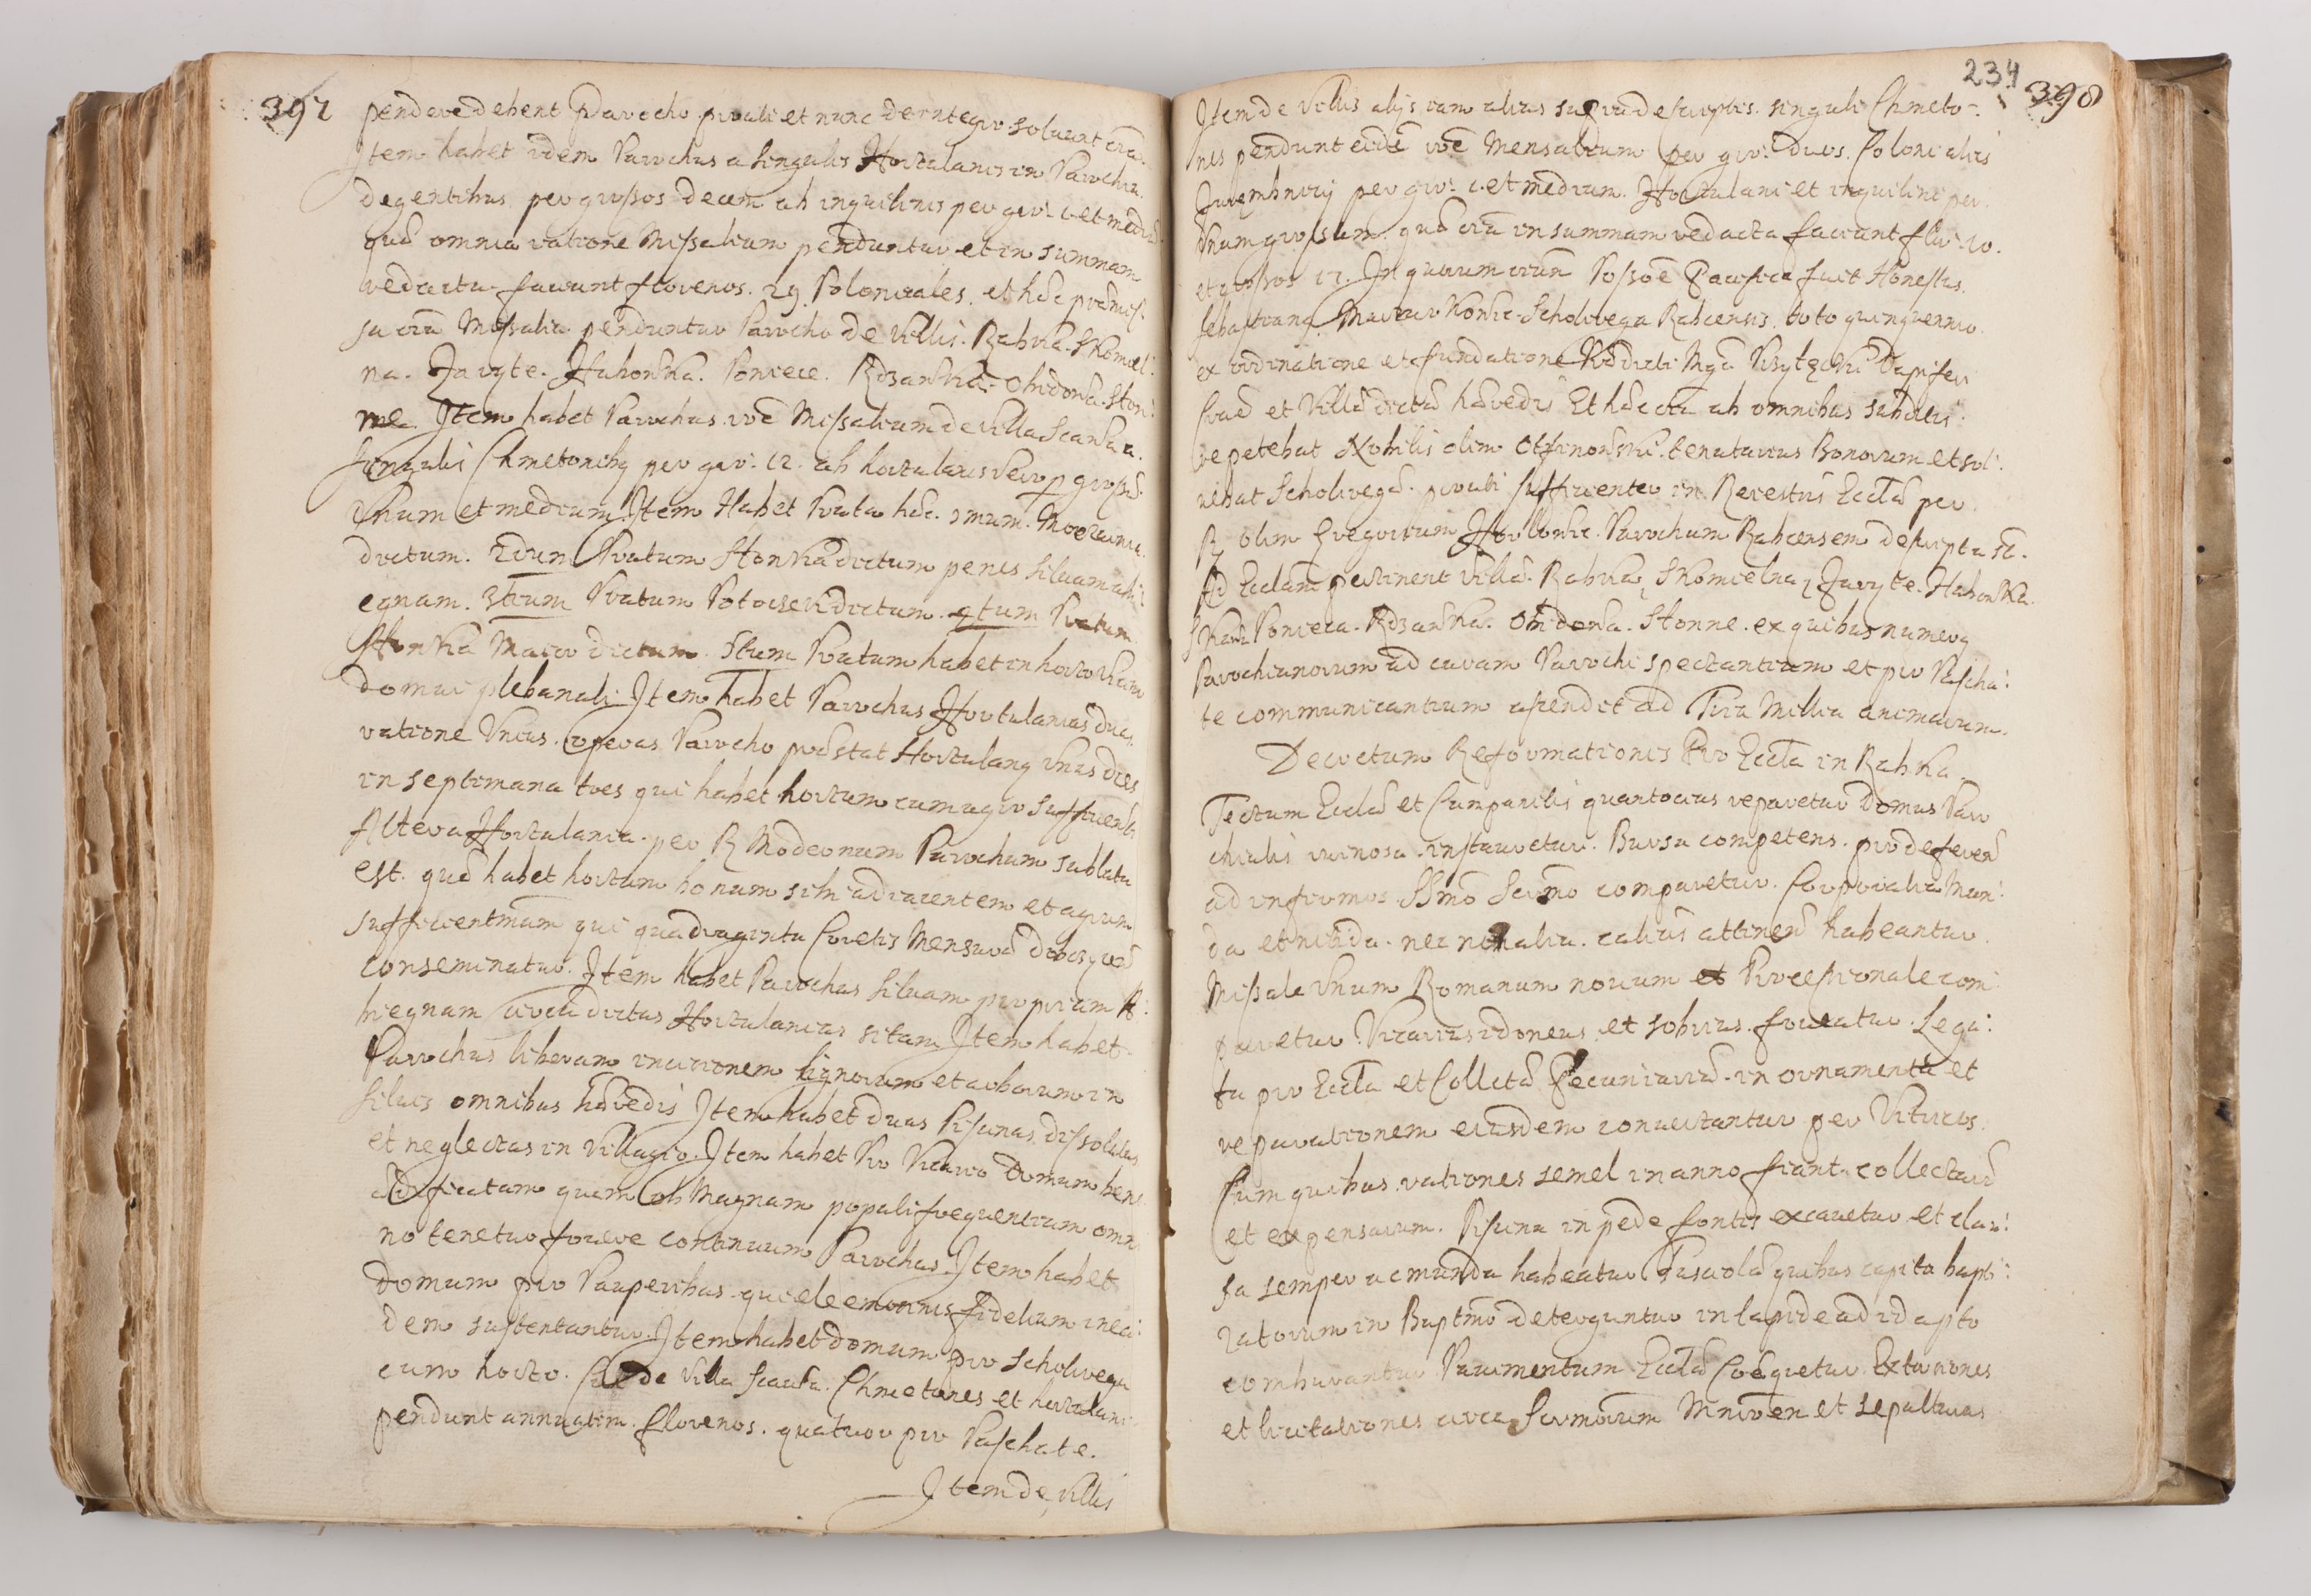 397
pendere debent Parocho prouti et nunc de integro soluunt oīa.
Item habet idem Parochus a singulis Hortulanis in Parochia
degentibus per grossos decem ab inquilinis per gro: 1. et mediū.
quæ omnia ratione Missalium penduntur et in summam
redacta faciunt florenos. 29. Polonicales. et hæc præmis:
sa oīa Missalia penduntur Parocho de Villis. Rabka. Skomiel:
na. Zaryte. Hubonska. Poncice. Rdzawka. Chidowa. Slon:
ne. Item habet Parochus roē Missalium de Villa Scawka a
singulis Chmetonibq per gro: 12. ab hortulanis vero p grossū
Vnum et medium. Item Habet Prata hæc. 1mum. Moczarnia
dictum. 2dum Pratum Slonka dictum penes siluam abi:
egnam. 3tium Pratum Potoczek dictum. 4tum Pratum
Slonka Mała dictum. 5tum Pratum habet in horto
domui plebanali. Item habet Parochus Hortulanias duas.
ratione Vnius. operas Parocho præstat Hortulanq Vnus dies
in septimana tres qui habet hortum cum agro sufficienti
Altera Hortulania per R Modernum Parochum sublata
est. quæ habet hortum bonum sibi adiacentem et agrum
sufficientmum qui quadraginta Coretis mensuræ
conseminatur. Item habet Parochus siluam propriam A:
biegnam circa dictas Hortulanias sitam. Item habet
Parochus liberam incisionem lignorum et arborum in
siluis omnibus hæredis. Item habet duas Piscinas dissolutas
et neglectas in Villagio. Item habet Pro Vicario Domum bene
ædificatam quem ob Magnam populi frequentiam omni
no tenetur fouere continuum Parochus. Item habet
Domum pro Pauperibus qui eleemosinis fidelium inea:
dem sustentantur. Item habet domum pro Scholirega
cum horto. Cui de Villa Scawka. Chmetones et hortulani
pendunt annuatim. florenos. quatuor pro Paschate.
Item de Villis
234
398
Item de Villis alijs iam alias supra descriptis. singuli Chmeto-
nes pendunt eidē roē Mensalium per gro: duos. Coloni alias
Zarembnicij per gro: 1. et medium. Hortulani et inquilini per
Vnum grossum. quæ oīa in summam redacta faciunt flor: 10.
et grossos 12. In quorum oīum Possoē Pacifica fuit Honestus
Sebastianq Scholirega Rabcensis. toto quinquennio
ex ordinatione et fundatione Prædicti Mgci Dapiferi
Crac et Villæ dictæ hæredis Et hæc oīa ab omnibus subditis
repetebat Nobilis olim tenutarius Bonorum et sol:
uebat Scholiregæ. prouti sufficienter in Regestris Eccliæ per
R olim Gregorium Parochum Rabcensem descripta st.
Ad Eccliam pertinent Villæ. Rabka, Skomielna, Zaryte. Hubonska
Poncica. Rdzawka. Chidowa. Slonne. ex quibus numerq
Parochianorum ad curam Parochi spectantium et pro Pascha:
te communicantium ascendit ad Tria Millia animarum.
Decretum Reformationis Pro Eccla in Rabka.
Tectum Eccliæ et Campanilis quantocius reparetur Domus Paro
chialis ruinosa instauretur. Bursa competens. pro deferend
ad infirmos SSmo Scrmō comparetur. Corporalia Mun:
da et nitida. nec non alia. calicis attinen habeantur.
Missale Vnum Romanum nouum et Processionale com:
paretur. Vicarius idoneus et sobrius. foueatur. Lega:
ta pro Eccla et Collectæ Pecuniariæ. in ornamenta et
reparationem eiusdem conuertantur per Vitricos.
Cum quibus rationes semel in anno fiant. collectarū
et expensarum. Piscina in pede fontis excauetur et clau:
sa semper ac munda habeatur. Fasciolæ quibus capita bapti:
zatorum in Baptmō deterguntur in lapide ad id apto
comburantur. Pauimentum Eccliæ Coæquetur. Extorsiones
et licitationes circa Scrmōrum Mnroēn et sepulturas